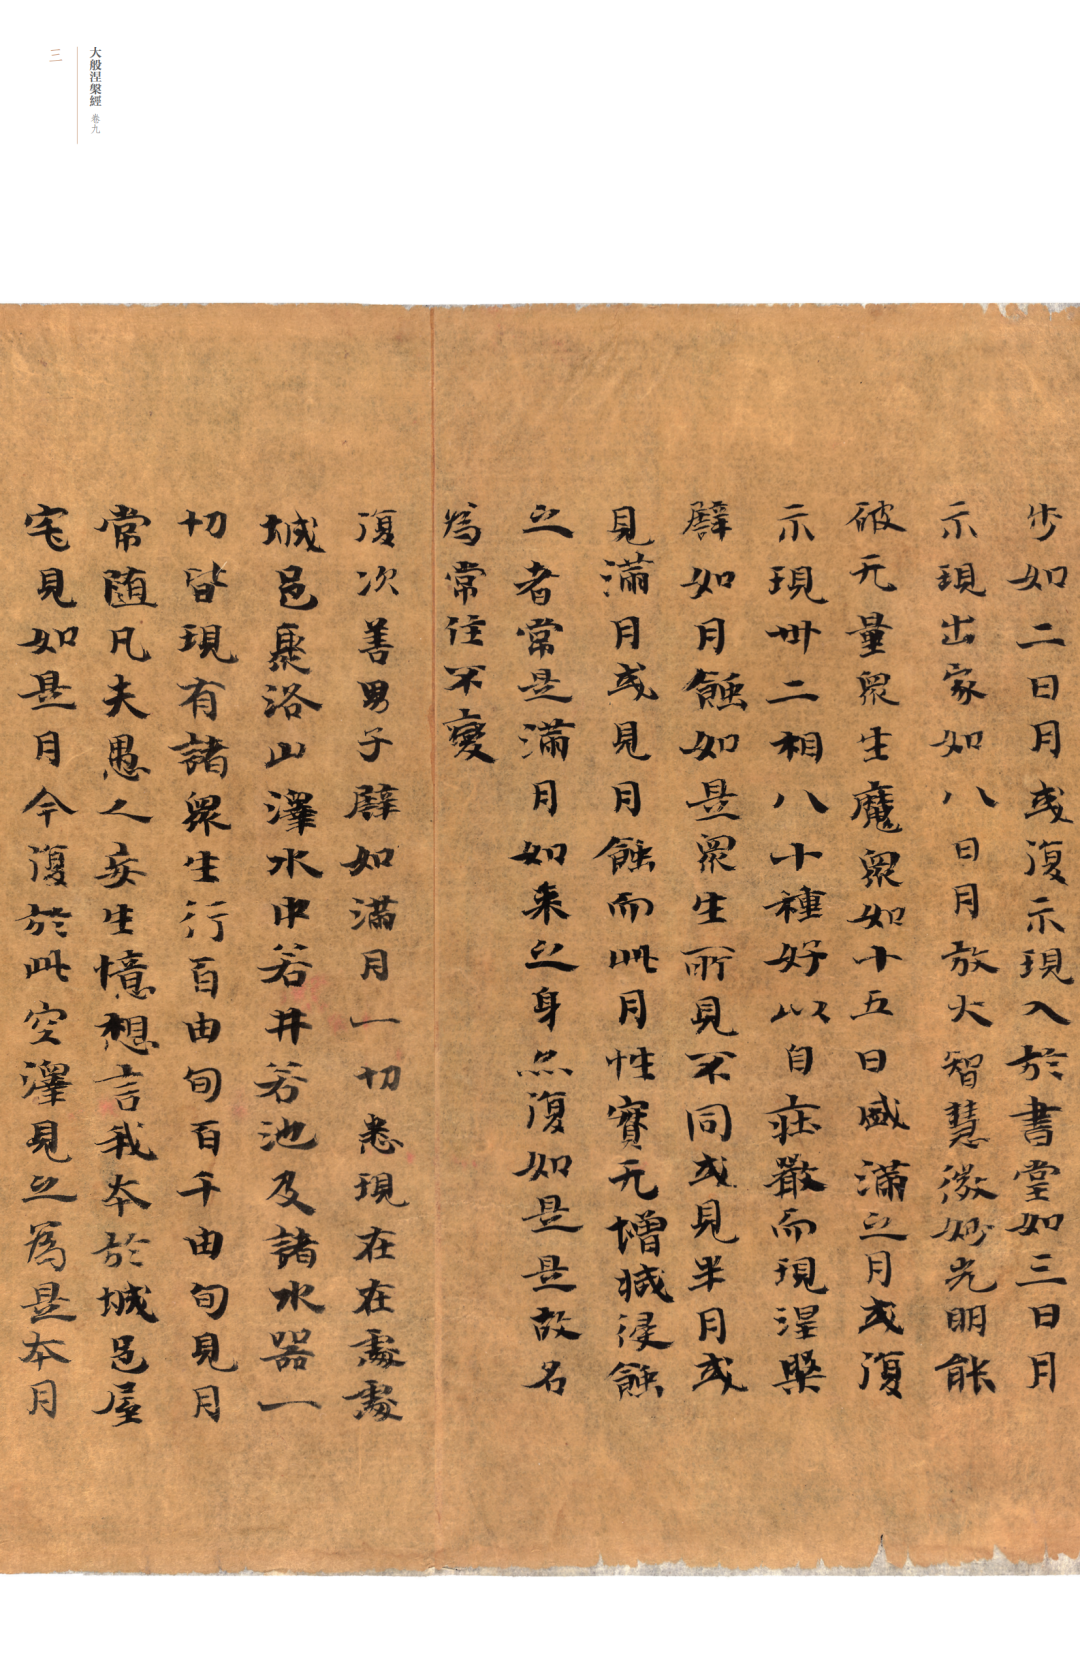 步如二日月或復示現入於書堂如三日月
示現出家如八日月放大智慧微妙光明能
破无量衆生魔衆如十五日盛滿之月或復
示現卅二相八十種好以自莊嚴而現涅槃
譬如月蝕如是衆生所見不同或見半月或
見滿月或見月蝕而此月性實无增減侵蝕
之者常是滿月如来之身亦復如是是故名
為常住不變
復次善男子譬如滿月一切悉現在在處處
城邑聚洛山澤水中若井若池及諸水器一
切皆現有諸衆生行百由旬百千由旬見月
常随凡夫愚人妄生憶想言我本於城邑屋
宅見如是月今復於此空澤見之為是本月
大般涅槃經 卷九
三